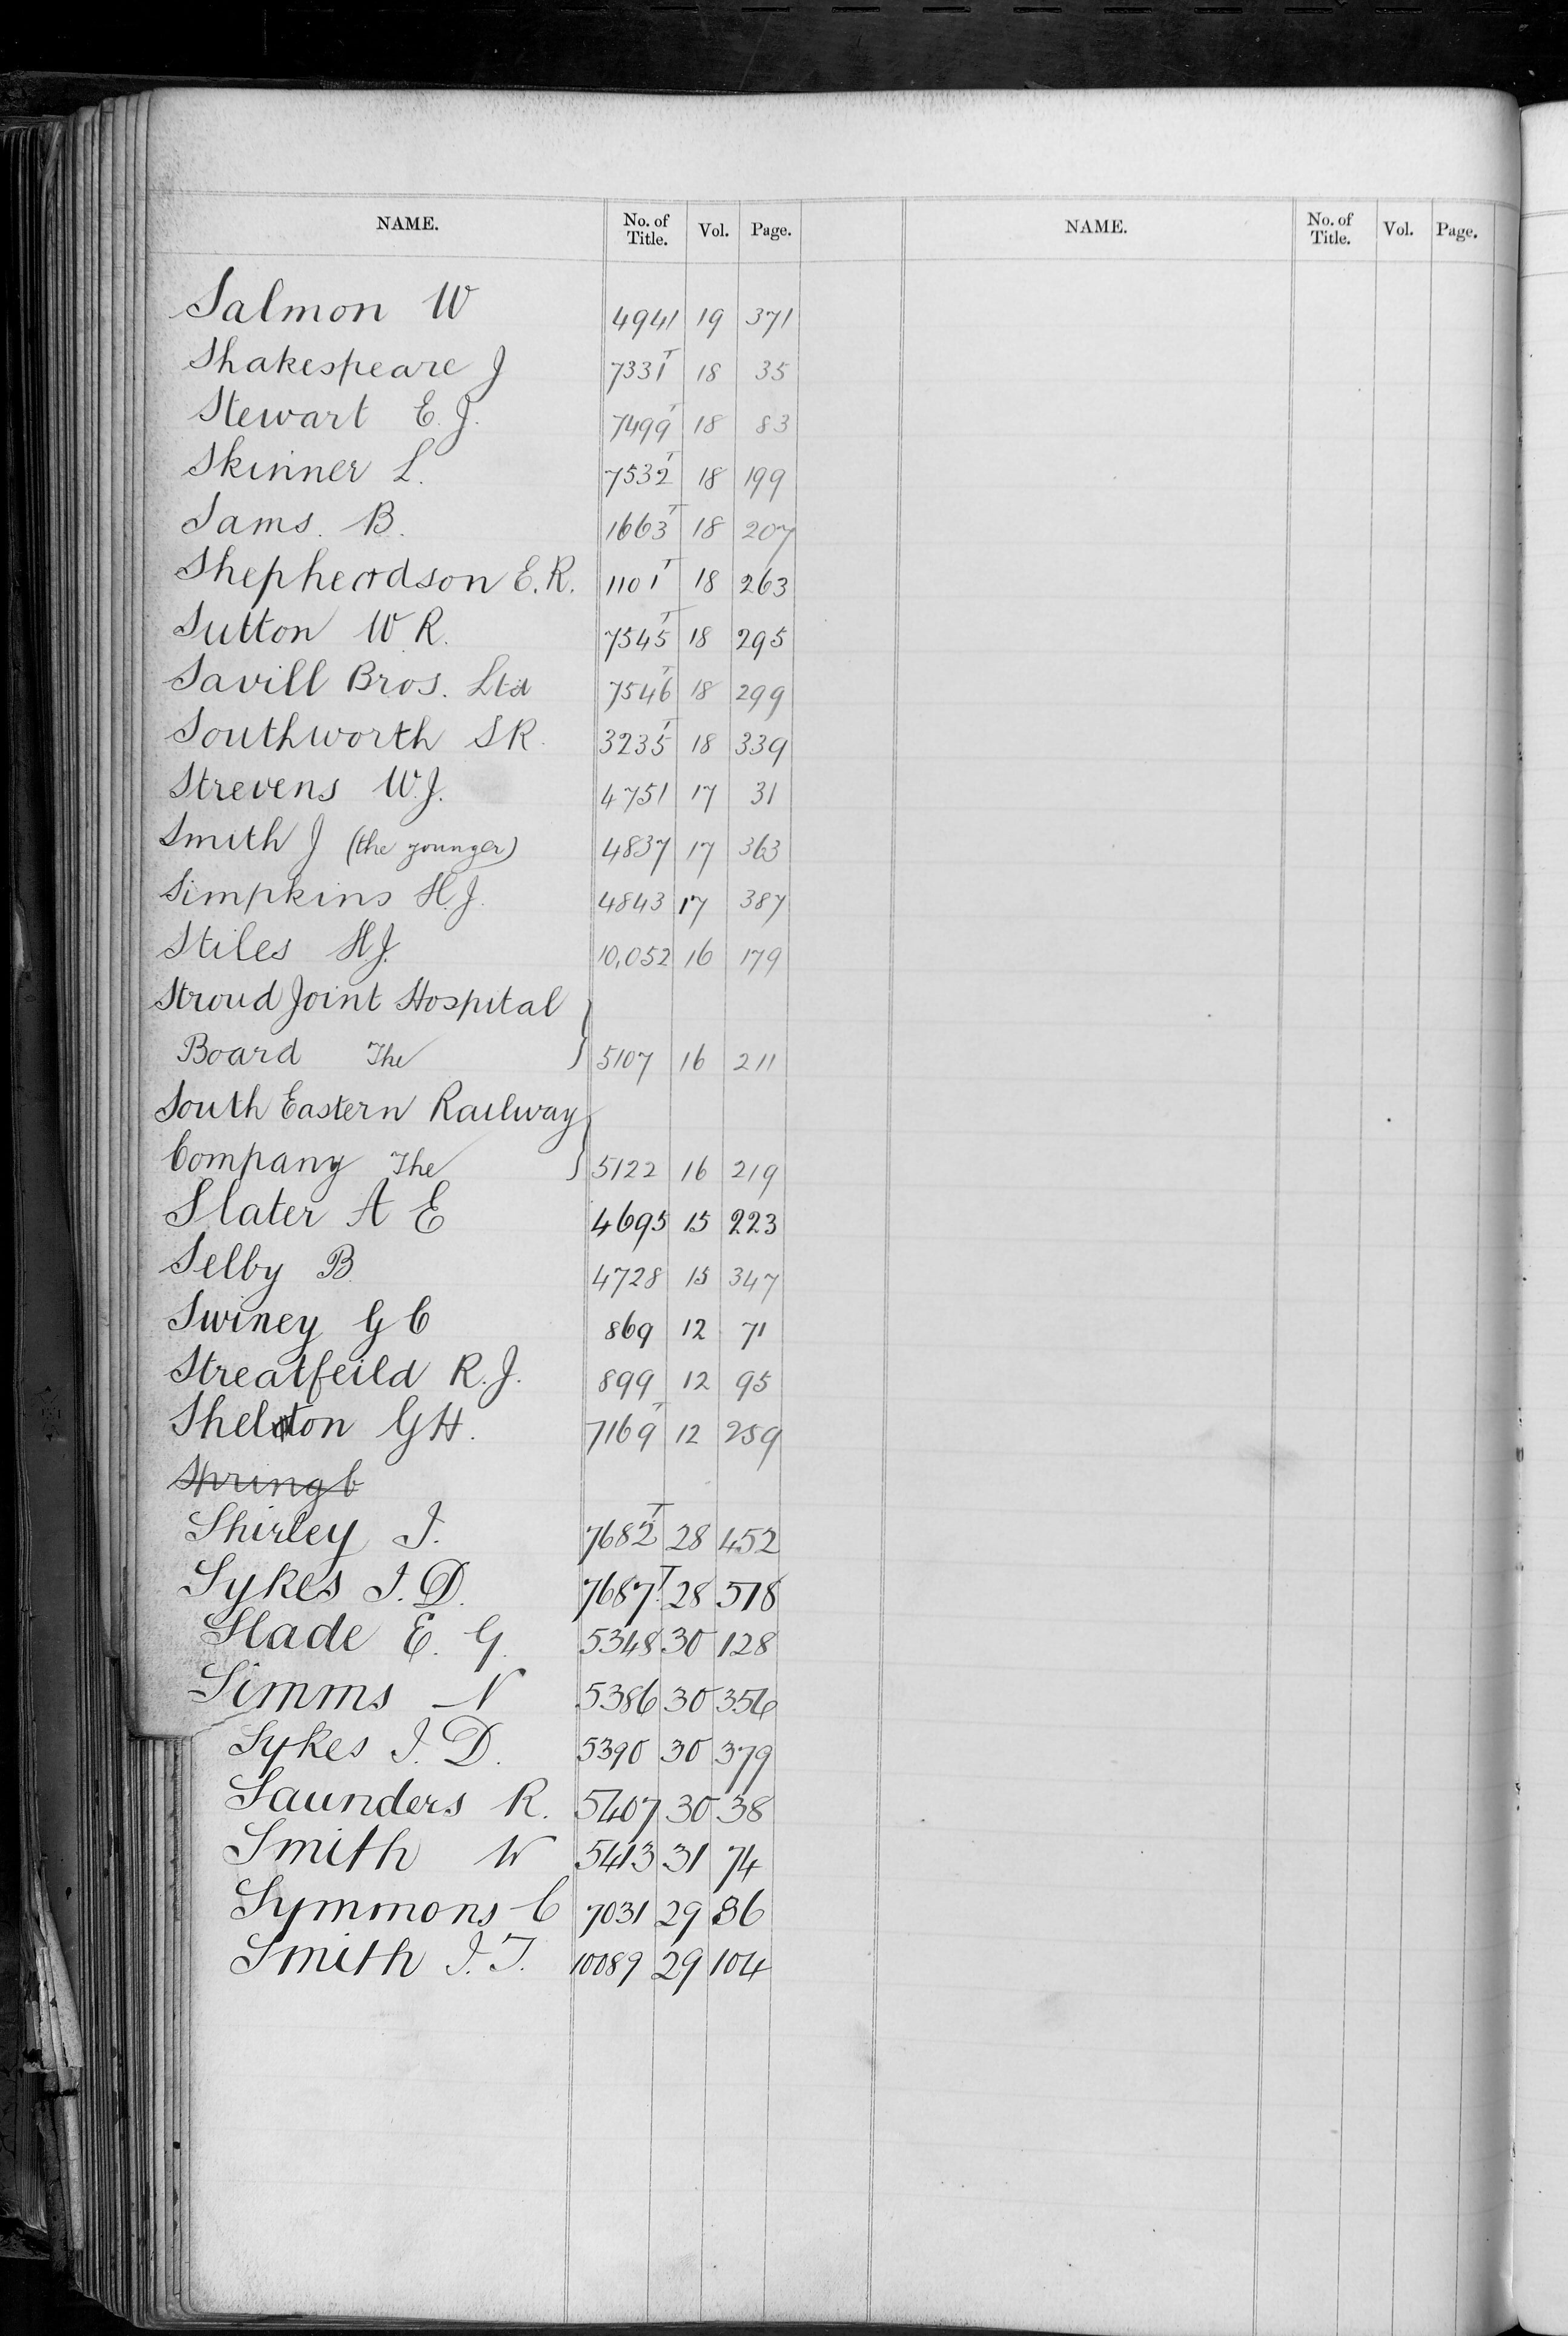 NAME. No. of Title. Vol. Page. NAME. No. of Title. Vol. Page.
Salmon W 4941 19 371
Shakespeare J 7331T 18 35
Stewart E. J. 7499T 18 83
Skinner L. 7532T 18 199
Sams. B. 1663T 18 207
Shepherdson E. R. 1101T 18 263
Sutton W R. 7545T 18 295
Savill Bros. Ltd 7546T 18 299
Southworth S R. 3235T 18 339
Strevens W. J. 4751 17 31
Smith J (the younger) 4837 17 363
Simpkins H. J. 4843 17 387
Stiles H. J. 10,052 16 179
Stroud Joint Hospital
Board The 5107 16 211
South Eastern Railway
Company The 5122 16 219
Slater A E 4695 15 223
Selby B 4728 15 347
Swiney G C 869 12 71
Streatfeild R. J. 899 12 95
Shelton G H. 7169T 12 259
Spring C
Shirley J. 7682T 28 452
Sykes J. D. 7687T 28 518
Slade E. G. 5348 30 128
Simms N 5386 30 356
Sykes J. D. 5390 30 379
Saunders R. 5407 30 38
Smith W 5413 31 74
Symmons C 7031 29 86
Smith J. T. 10089 29 104